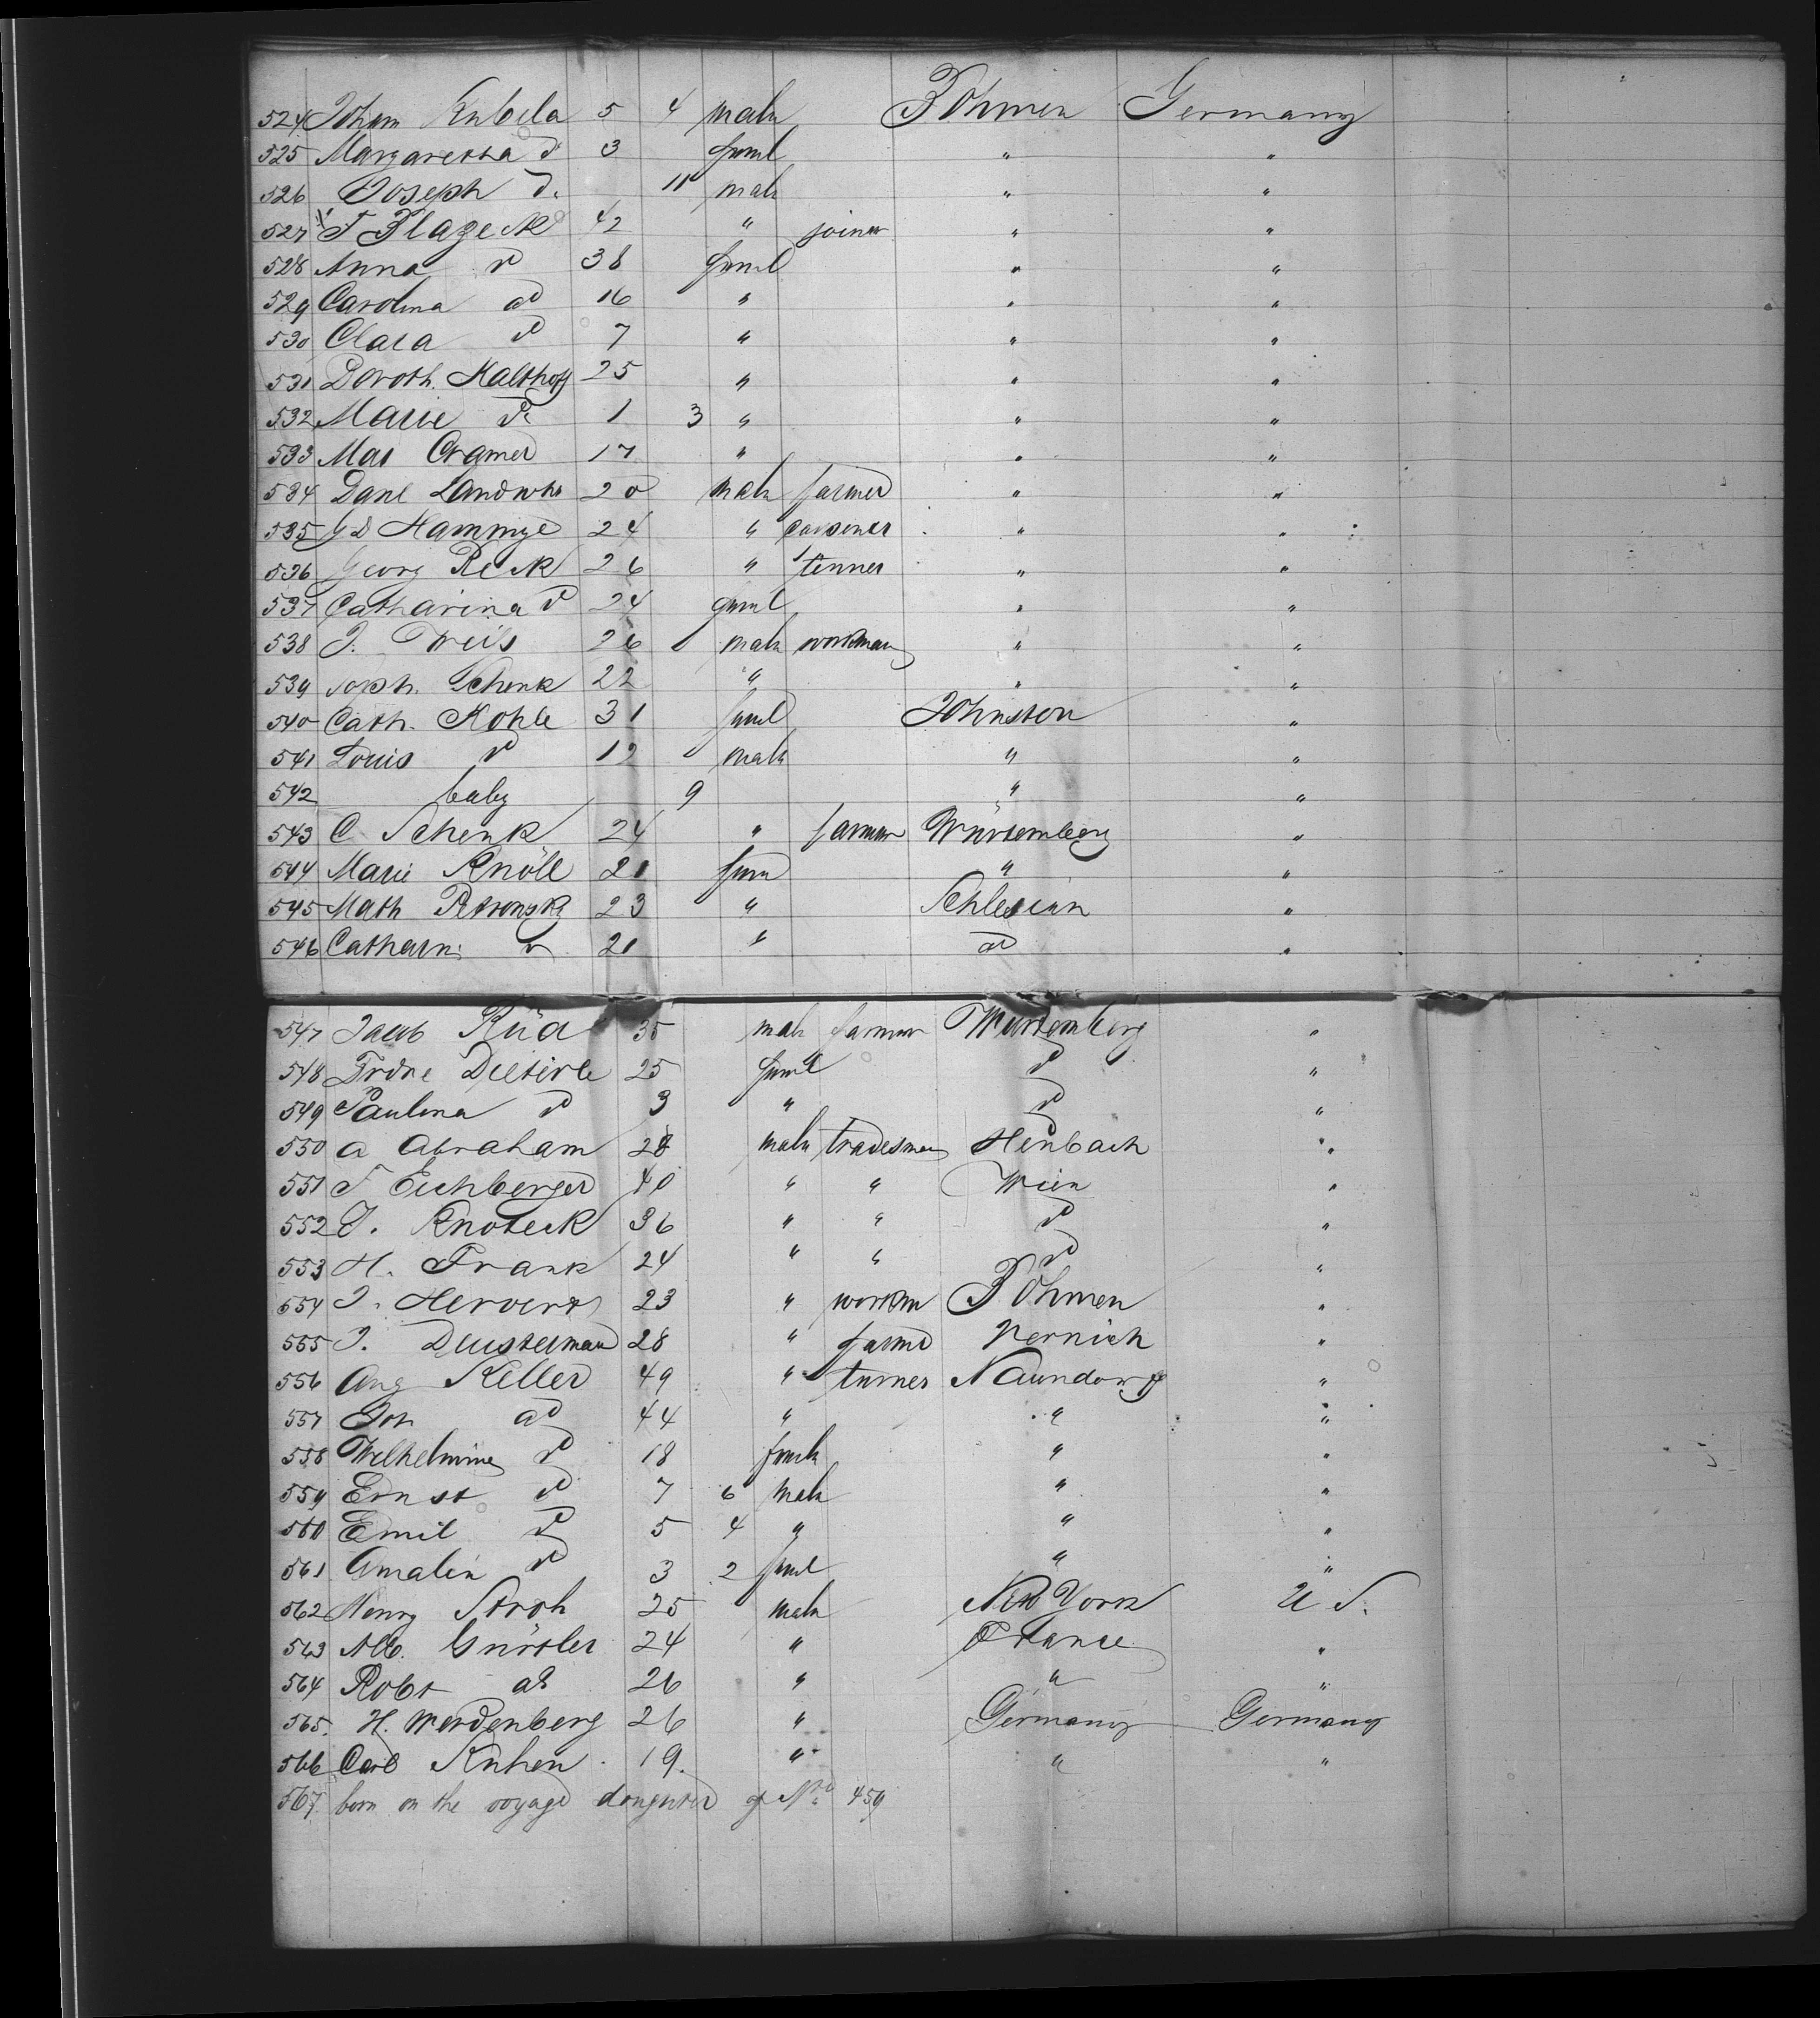 524 Johann Kubela 5 4 male Böhmen Germany
525 Margaretha d 3 feml " "
526 Joseph d. 11 male " "
527 F Blazeck 42 " joiner " "
528 Anna d 38 feml " "
529 Carolina do 16 " " "
530 Clara d 7 " " "
531 Doroth. Kalthoff 25 " " "
532 Marie do 1 3 " " "
533 Mar Cramer 17 " " "
534 Danl Landwhr 20 male farmer " "
535 G D Hammye 24 " " "
536 Georg Reck 26 " tenner " "
537 Catharina d 24 feml " "
538 J. Weiss 26 male workman " "
539 Soph. Schenk 22 " " "
540 Cath. Kohle 31 feml "
541 Louis d 12 male " "
542 baby 9 " "
543 C Schenk 24 " farmer Würtemberg "
544 Marie Knöll 21 fem " "
545 Math Petronsky 23 " Schlesien "
546 Catharin d 21 " do "
547 Jacob Rüd 35 male farmer Würtemberg "
548 Frdre Dieterle 25 feml d "
549 Paulina d 3 " d "
550 A Abraham 28 male tradesman Henbach "
551 F Eichberger 40 " " Wien "
552 J. Knoteck 36 " " d "
553 H. Frank 24 " " d "
554 J. Hervert 23 " workm Böhmen "
555 J. Deusterman 28 " farmer Vernich "
556 Aug Keller 49 " turner Naundorf "
557 Joh do 44 " " "
558 Wilhelmine d 18 female " "
559 Ernst d 7 6 male " "
560 Emil d 5 4 " " "
561 Amalie d 3 2 feml " "
562 Henry Stroh 25 male New York U S.
563 Alb. Gürtler 24 " France "
564 Robt do 26 " " "
565. H. Werdenberg 26 " Germany Germany
566 Carl Kuhen 19. " " "
567. born on the voyage doughter of No. 459